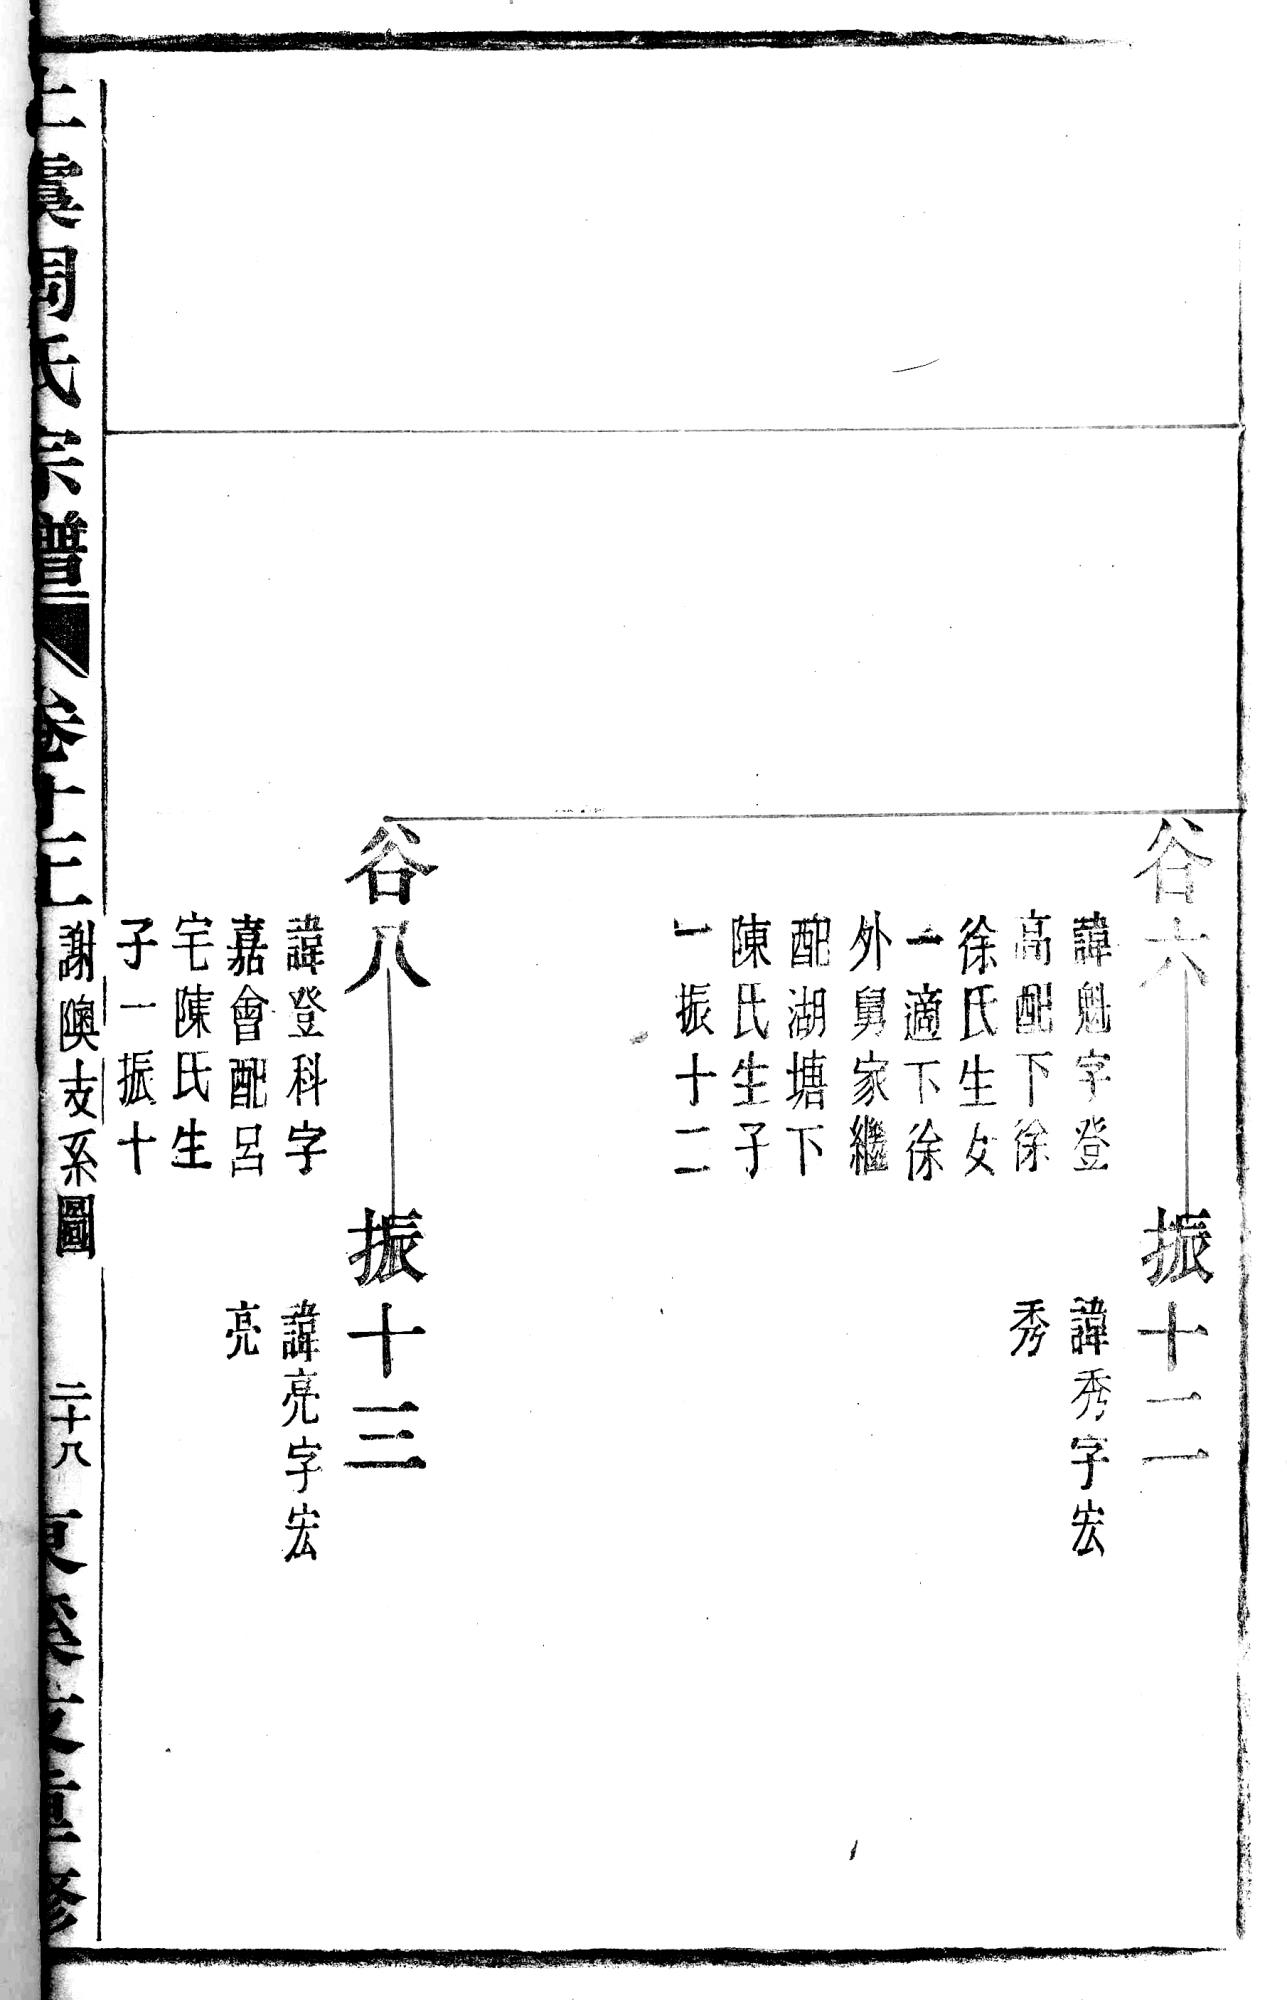 谷六
諱魁字登
高配下徐
徐氏生女
一適下徐
外舅家繼
配湖塘下
陳氏生子
一振十二
振十二
諱秀字宏
秀
谷八
諱登科字
嘉會配呂
宅陳氏生
子一振十
振十三
諱亮字宏
亮
上虞周氏宗譜
卷十三
謝隩支系圖
二十八
重修